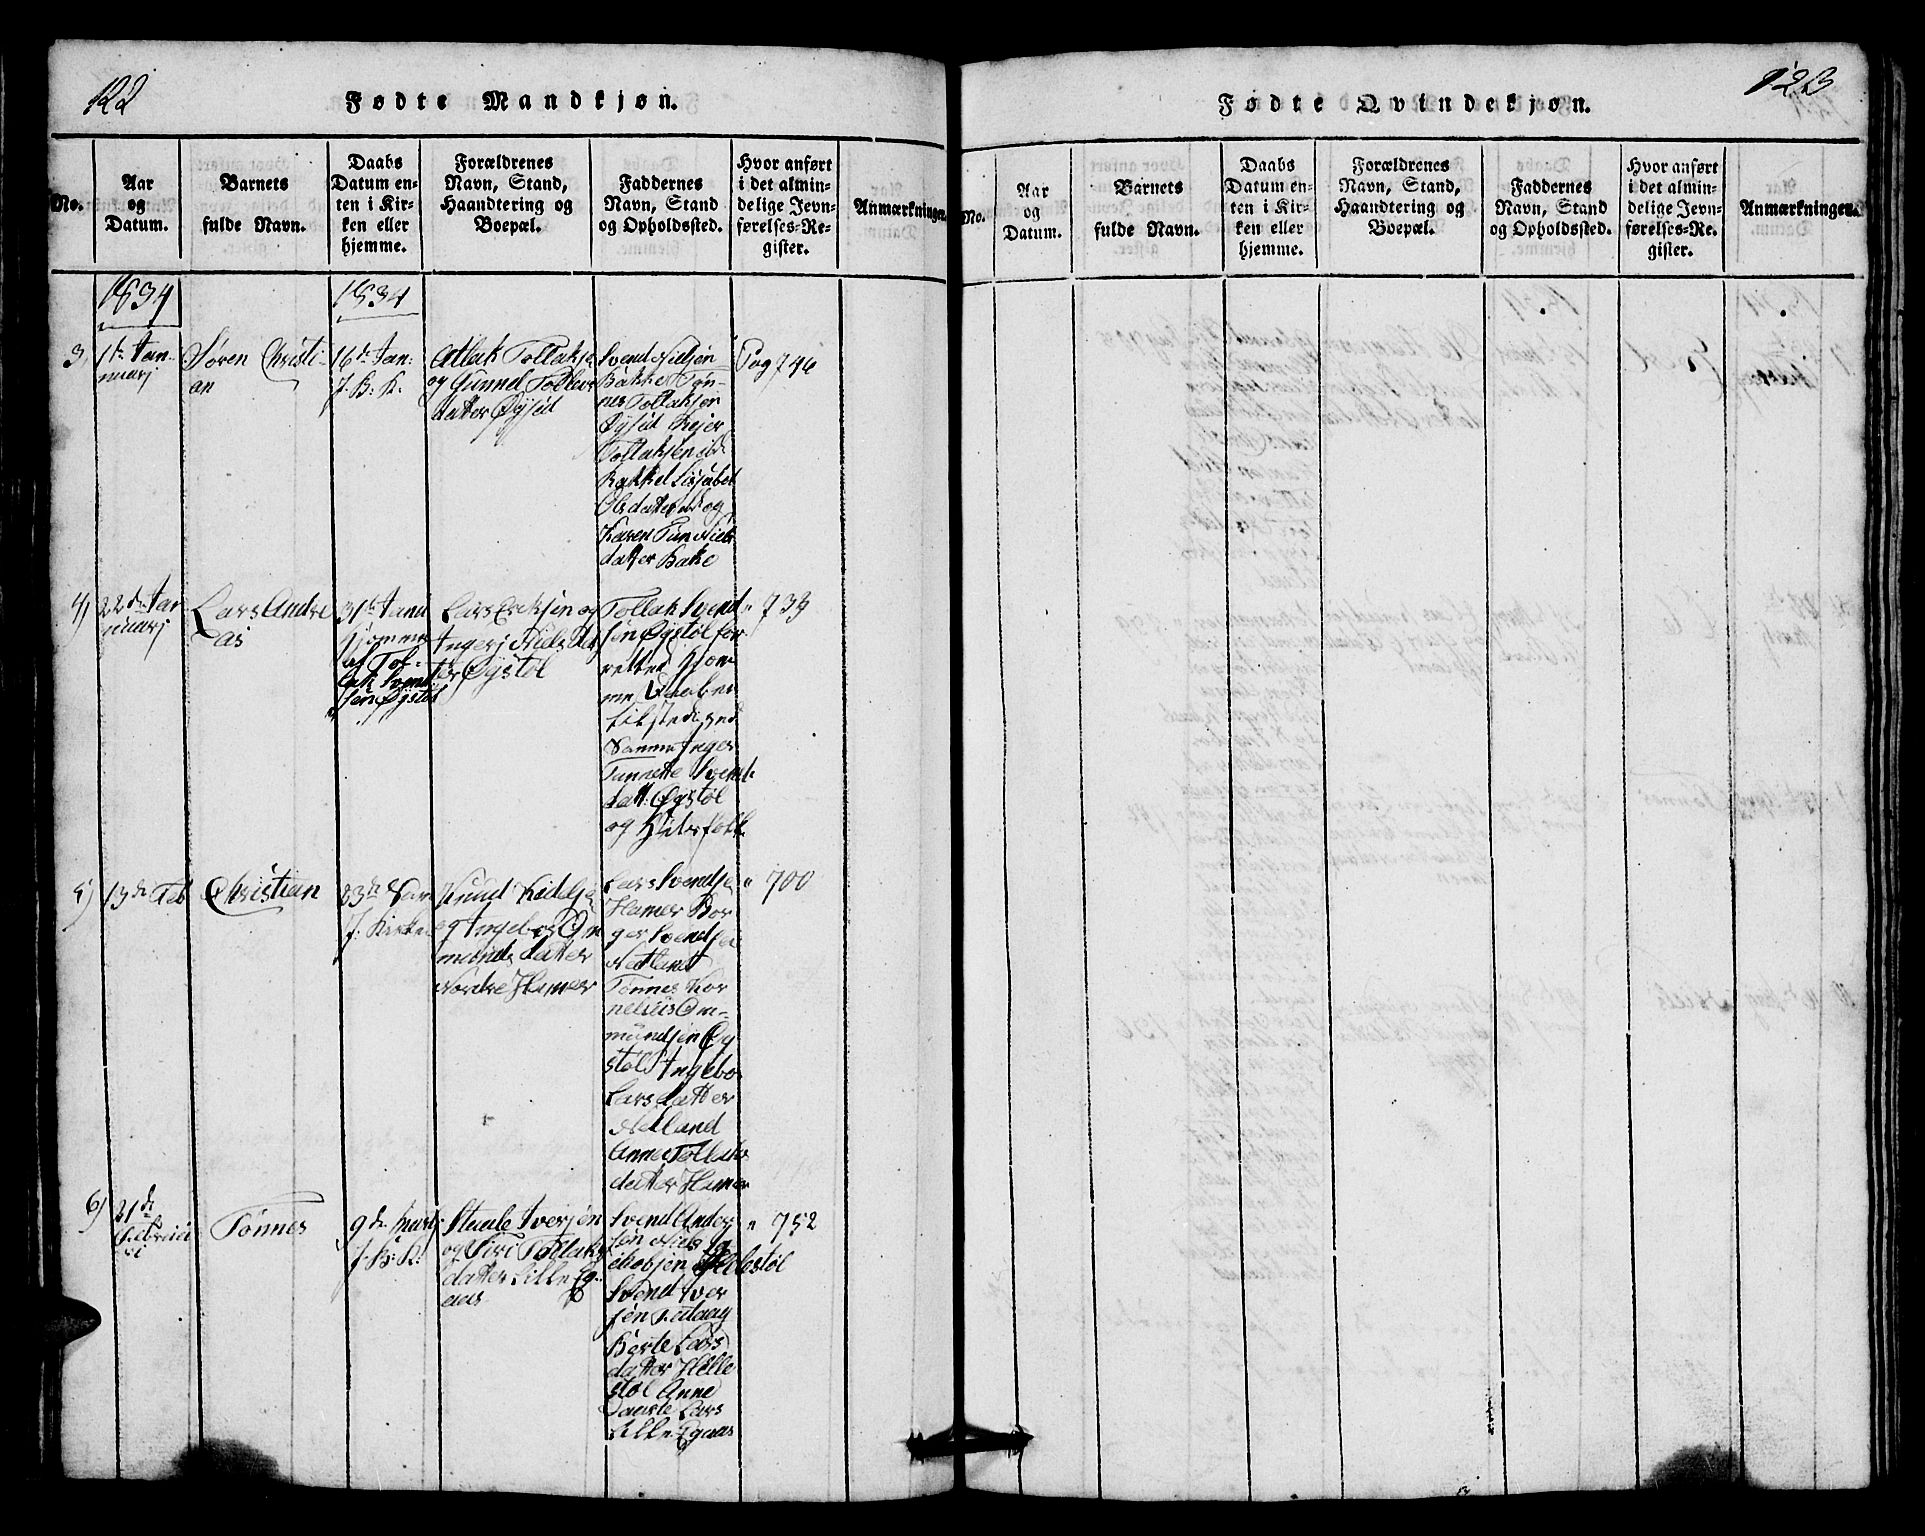 122
Fødte Mandkjøn.
No.
Aar
og
Datum.
Barnets
fulde Navn.
Daabs
Datum en-
ten i Kir-
ken eller
hjemme.
Forældrenes
Navn, Stand,
Haandtering og
Boepæl.
Faddernes
Navn, Stand
og Opholdssted.
Hvor anført
i det almin-
delige Jevn-
førelses-Re-
gister.
Anmærkninger.
1834
1834
3)
1te Jan-
nuarj
Søren Christi-
an
16de Jan:
J. B: K.
Atlak Tollaksø
og Gunnel Tollevs
datter Øysæd
Svend Nielsøn
Bakke Tøn-
nes Tollaksøn
Øysæd Rejer
Tollaksen ibd
Rakkel Lisjabet
Olsdatter ibd og
Karen Tun Niels
datter Bake
Pag 746
4)
22de Jan
nuarj
Lars Andre
as
31te Janu
Hjomme
af Tol-
lak Svend
søn Øystøl
Lars Erksøn og
Ingerj Niels dat
ter Øystøl
Tollak Svend
søn Øystøl for
retted Hjom
me Daaben
Sammе Inger
Tunnette Svend
datt: Øystøl
og Huusfolk
" 734
5)
13de Feb
Christian
23de Feb
J: Kirke
Knud Kidelsø
og Ingebor Om
munds datter
Nordre Hamer
Lars Svendsø
Hamer Bor
ger Svendsø
Netland
Tønnes Kor
nelius Om-
mundsøn Øy
støl Ingebor
Larsdatter
Netland
Anne Tollaks
datter Hamer
" 700
6)
21de
Februa
ri
Tønnes
9de Martj
J. B: K:
Staale Iversøn
og Siri Tollaks
datter Lille Eg-
aas
Svend Ander
søn Niels
Helestøl
Svend Iver
søn
Berte Lars
datter Helle
støl Anne
Lars
Lille Egaas
" 752
123
Fødte Qvindekjøn.
No.
Aar
og
Datum.
Barnets
fulde Navn.
Daabs
Datum en-
ten i Kir-
ken eller
hjemme.
Forældrenes
Navn, Stand,
Haandtering og
Boepæl.
Faddernes
Navn, Stand
og Opholdssted.
Hvor anført
i det almin-
delige Jevn-
førelses-Re-
gister.
Anmærkninger.